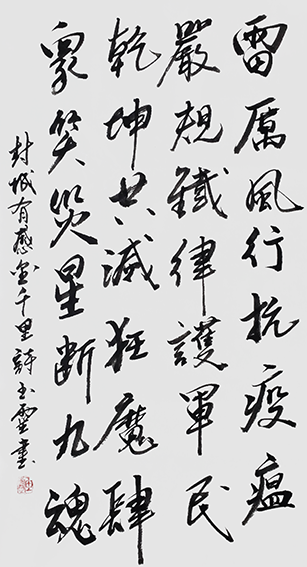 雷厲風行抗疫瘟
嚴規鐵律護軍民
乾坤共滅狂魔肆
衆笑災星斷九魂
封城有感金千里詩玉靈書